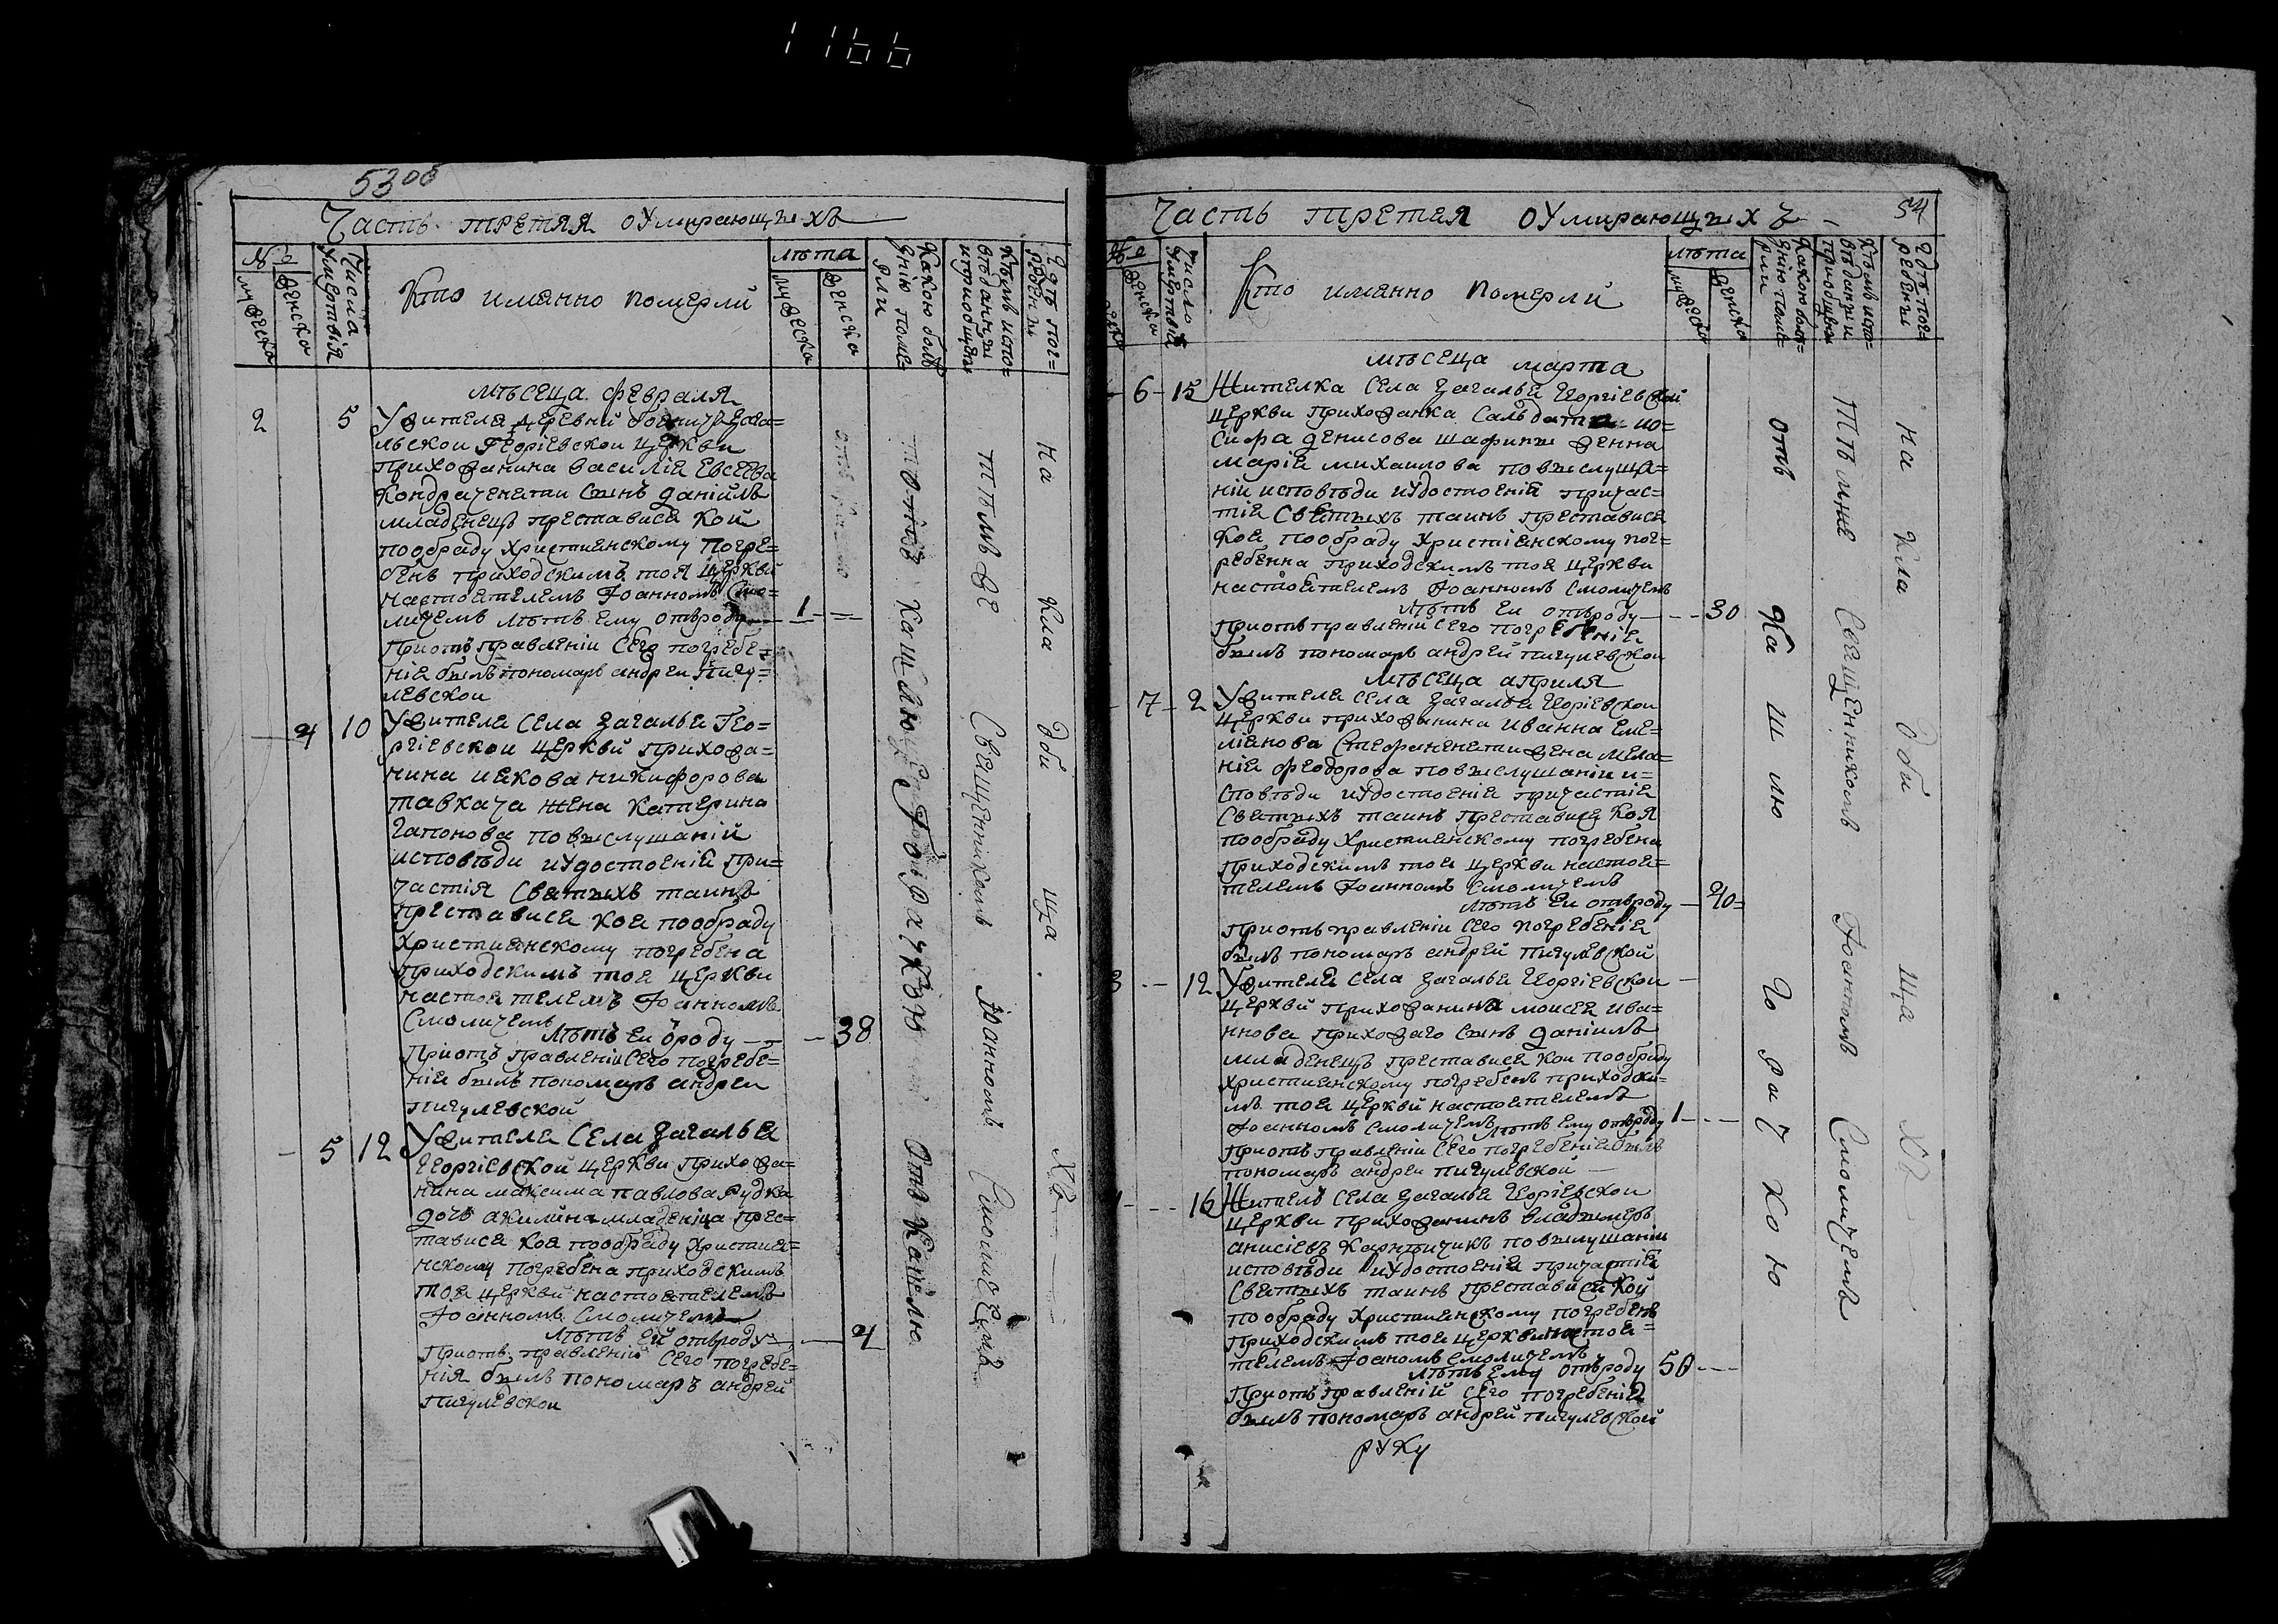 1166
53об
Часть третяя оумирающыхъ
№е
мужеска
женска
Числа
умертвія
Кто имянно померли
лѣта
мужеска
женска
Какою болѣ
знію поме=
рли
Кѣмъ испо=
вѣданны
ипріобщены
Гдѣ пог=
ребены
мѣсеца февраля
2
5
Ужителя деревни
льскои Георгіевскои церкви
прихожанина василіа Евсеева
Кондраченети сынъ даніилъ
младенецъ преставися кой
пообраду христианскому погре=
бенъ приходскимъ тоя церкви
настоятелемъ Іоанномъ Смо=
личемъ лѣтъ ему отъроду
1
Приотъправленіи Сего погребе=
ніа былъ пономаръ андреи пигу=
левскои
4
10
Ужителя Села Загалья Гео=
ргіевскои церквй прихожа=
нина иакова никифорова
тавкача жена катерина
Гапонова повыслушаній
исповѣди иУдостоеніи при=
частія Святыхъ таинъ
преставися коя пообраду
Христианскому погребена
приходскимъ тоя церкви
настоятелемъ Іоанномъ
Смоличемъ
лѣтъ еи ѿроду
38
Приотъправленіи Сего погребе=
ніа былъ пономаръ андреи
пигулевской
5
12
Ужителя Села Загалья
Георгіевской церкви прихожа=
нина максима павлова Рудка
дочь акилина младеница прес=
тавися коя пообраду христиа=
нскому погребена приходскимъ
тоя церкви настоятелемъ
Іоанномъ Смоличемъ
лѣтъ ей отъроду
4
Приотъправленіи Сего погребе=
нія былъ пономаръ андрей
пигулевскои
Отъ Кашлю
тѣмъ же Священникомъ Іоанномъ Смоличемъ
На Кла дби ща хъ
Часть третяя оУмирающыхъ
54
№е
женска
число
умертвій
Кто имянно померли
лѣта
мужеска
женска
Какою болѣ=
знію поме=
рли
Кѣмъ испо=
вѣданы и
приобщены
Гдѣ пог=
ребены
мѣсеца марта
6
15
Жителка Села Загалья Георгіевской
церкви прихожанка Салдата ио=
сифа денисова шафиты женна
маріа михаилова повыслуша=
ніи исповѣди иУдостоеніи причас=
тіа Святыхъ таинъ преставися
Коя пообраду христіанскому пог=
ребенна приходскимъ тоя церкви
настоятелемъ Іоанномъ Смоличемъ
лѣтъ еи отъроду
30
Приотъправленіи Сего погребеніа
былъ пономаръ андрей пигулевскои
мѣсеца априля
7
2
Ужителя Села Загалья Георгіевскои
церкви прихожанина иванна еме=
ліанова Стефаненети жена мела=
ніа феодорова повыслушаніи и=
сповѣди иУдостоеніа причастіа
Святыхъ таинъ преставися коя
пообраду христианскому погребена
приходскимъ тоя церкви настоя=
телемъ Іоанномъ Смоличемъ
лѣтъ еи отъроду
40
Приотъправленіи Сего погребеніа
былъ пономаръ андрей пигулевской
3
12
Ужителя Села Загалья Георгіевскои
церквй прихожанина моисея ива=
ннова прихожаго Сынъ даніилъ
младенецъ преставися кои пообраду
христианскому погребенъ приходски=
мъ тоя церквй настоятелемъ
Іоанномъ Смоличемъ лѣтъ ему отъроду
1
Приотъправленіи Сего погребеніа былъ
пономаръ андреи пигулевской
16
Жителъ Села Загалья Георгіевскои
церкви прихожанинъ владымеръ
анисіевъ повыслушаніи
исповѣди иУдостоеніа причастіа
Святыхъ таинъ преставися Кой
пообраду христианскому погребенъ
приходскимъ тоя церкви настоя=
телемъ Іоаномъ Смоличемъ
лѣтъ ему отъроду
50
Приотъправленій Сего погребеніа
былъ пономаръ андрей пигулевской
руку
отъ Ка ш лю Го ря ч Ко ю
Тѣмже Свещенникомъ Іоанномъ Смоличемъ
На Кла дби ща хъ